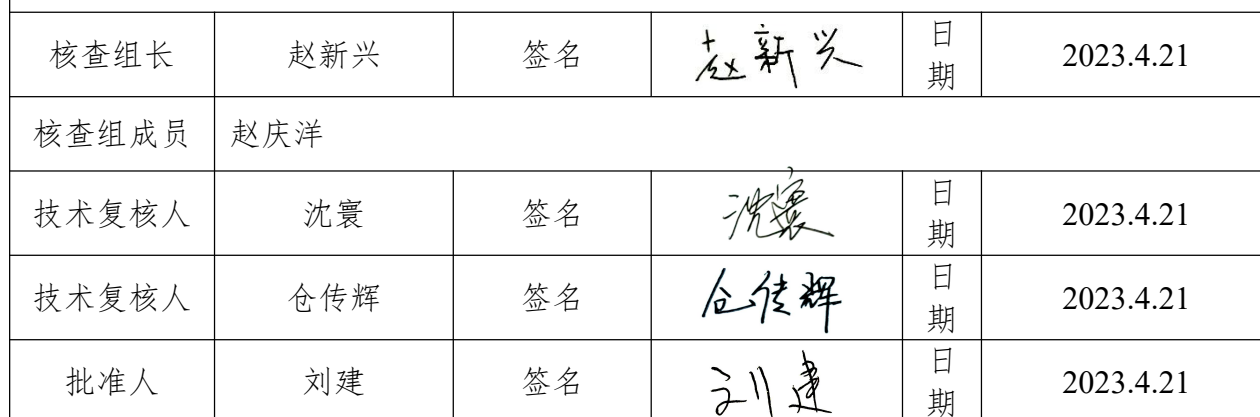 核查组长 赵新兴 签名 赵新兴 日期 2023.4.21
核查组成员 赵庆洋
技术复核人 沈寰 签名 沈寰 日期 2023.4.21
技术复核人 仓传辉 签名 仓传辉 日期 2023.4.21
批准人 刘建 签名 刘建 日期 2023.4.21